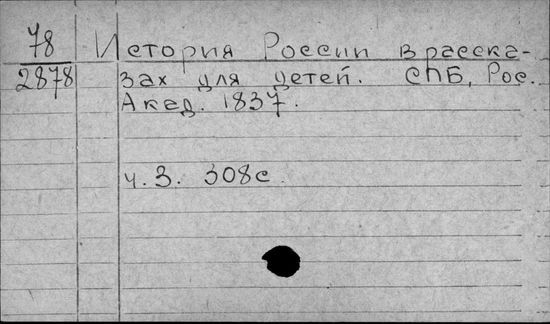 78
2878
История России в расска-
зах для детей. СПБ, Рос.
Акад. 1837.
ч. 3. 308с.